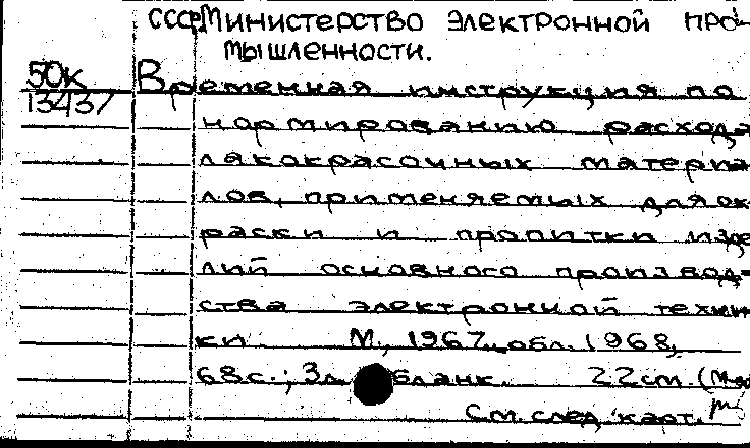 СССР. Министерство электронной про-
мышленности.
50к Временная инструкция по
13437 нормированию расхода
лакокрасочных материа-
лов, применяемых для ок-
раски и пропитки изде-
лий основного производ-
ства электронной техни-
ки. М., 1967, обл. 1968,
68с.; 3л. бланк. 22см. (М-во
См. след. карт.